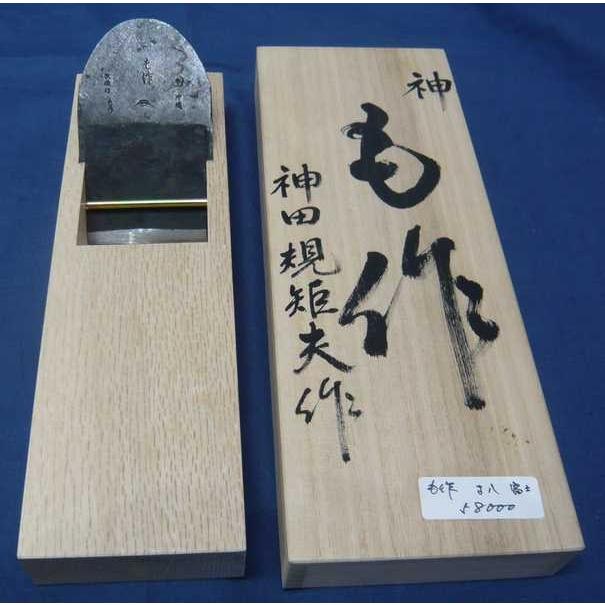 神
も作
神田規矩夫作
も作 寸八 富士
58000
も作